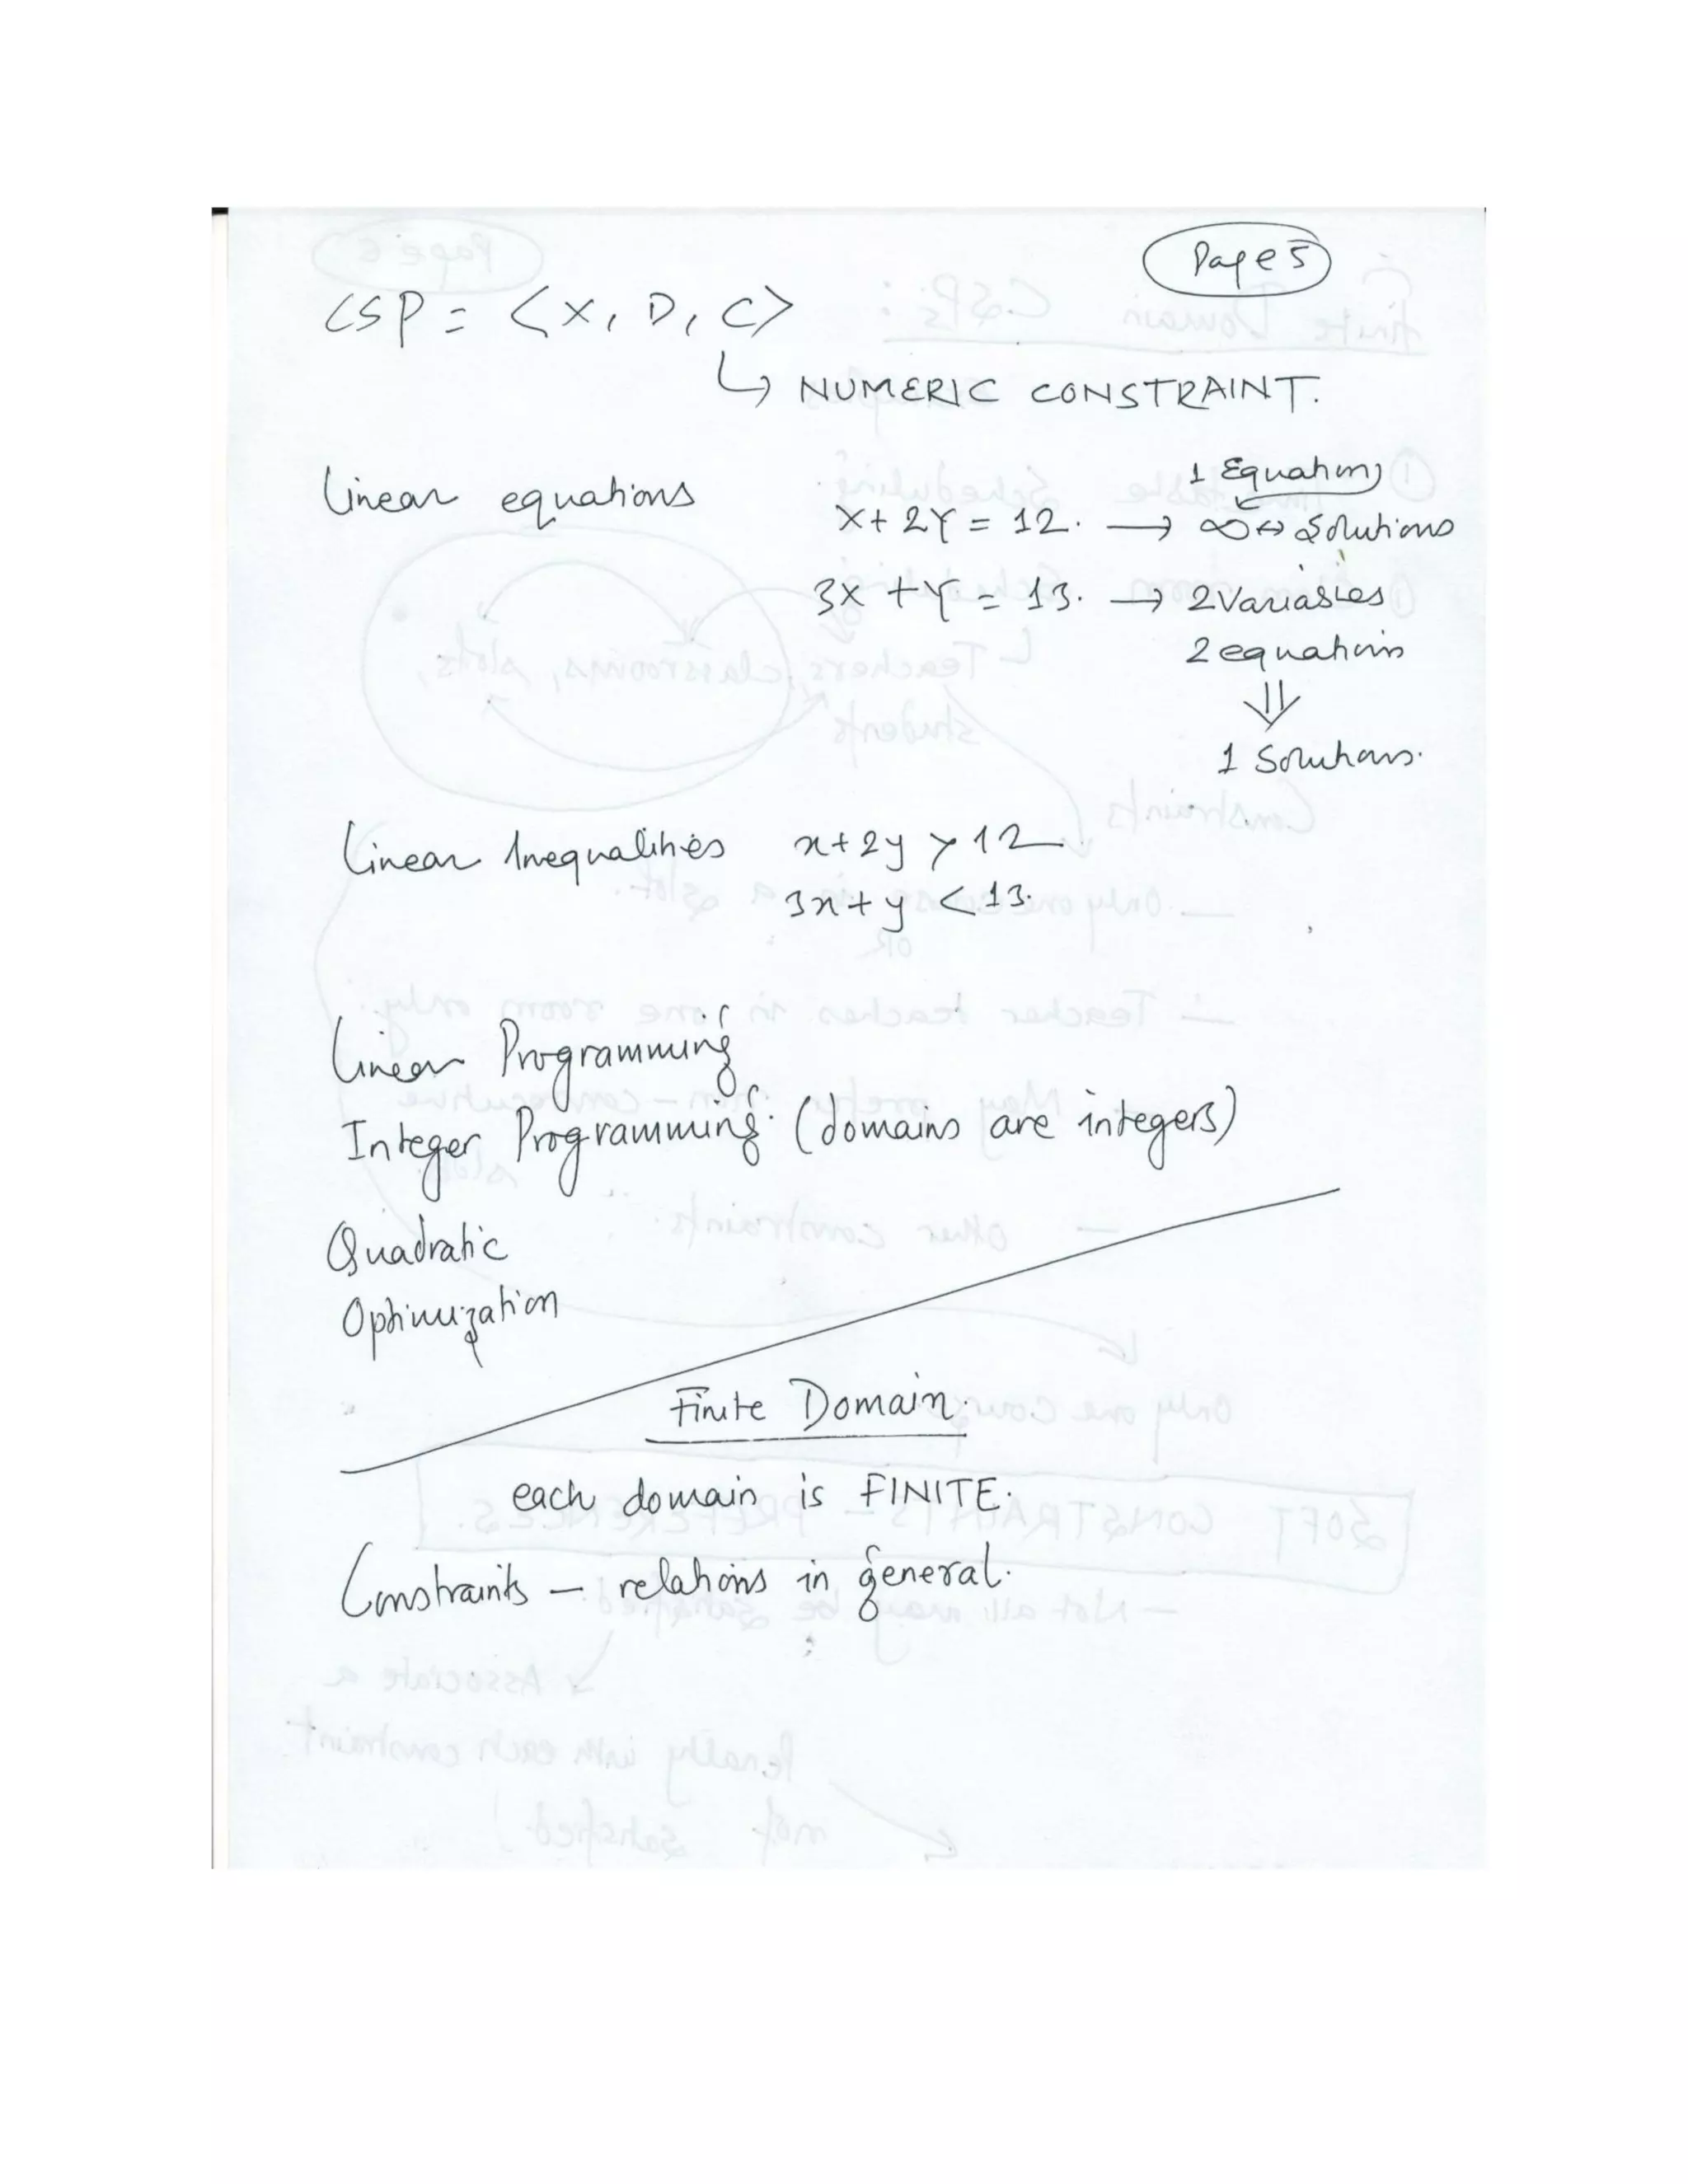 Page 5
CSP = <X, D, C>
↳ NUMERIC CONSTRAINT.
Linear equations
1 Equation
X + 2Y = 12. → ∞ ↔ Solutions
3X + Y = 13. → 2 Variables
2 equations
⇓
1 Solutions.
Linear Inequalities x + 2y > 12
3x + y < 13.
Linear Programming
Integer Programming. (domains are integers)
Quadratic
Optimization
Finite Domain.
each domain is FINITE.
Constraints – relations in general.